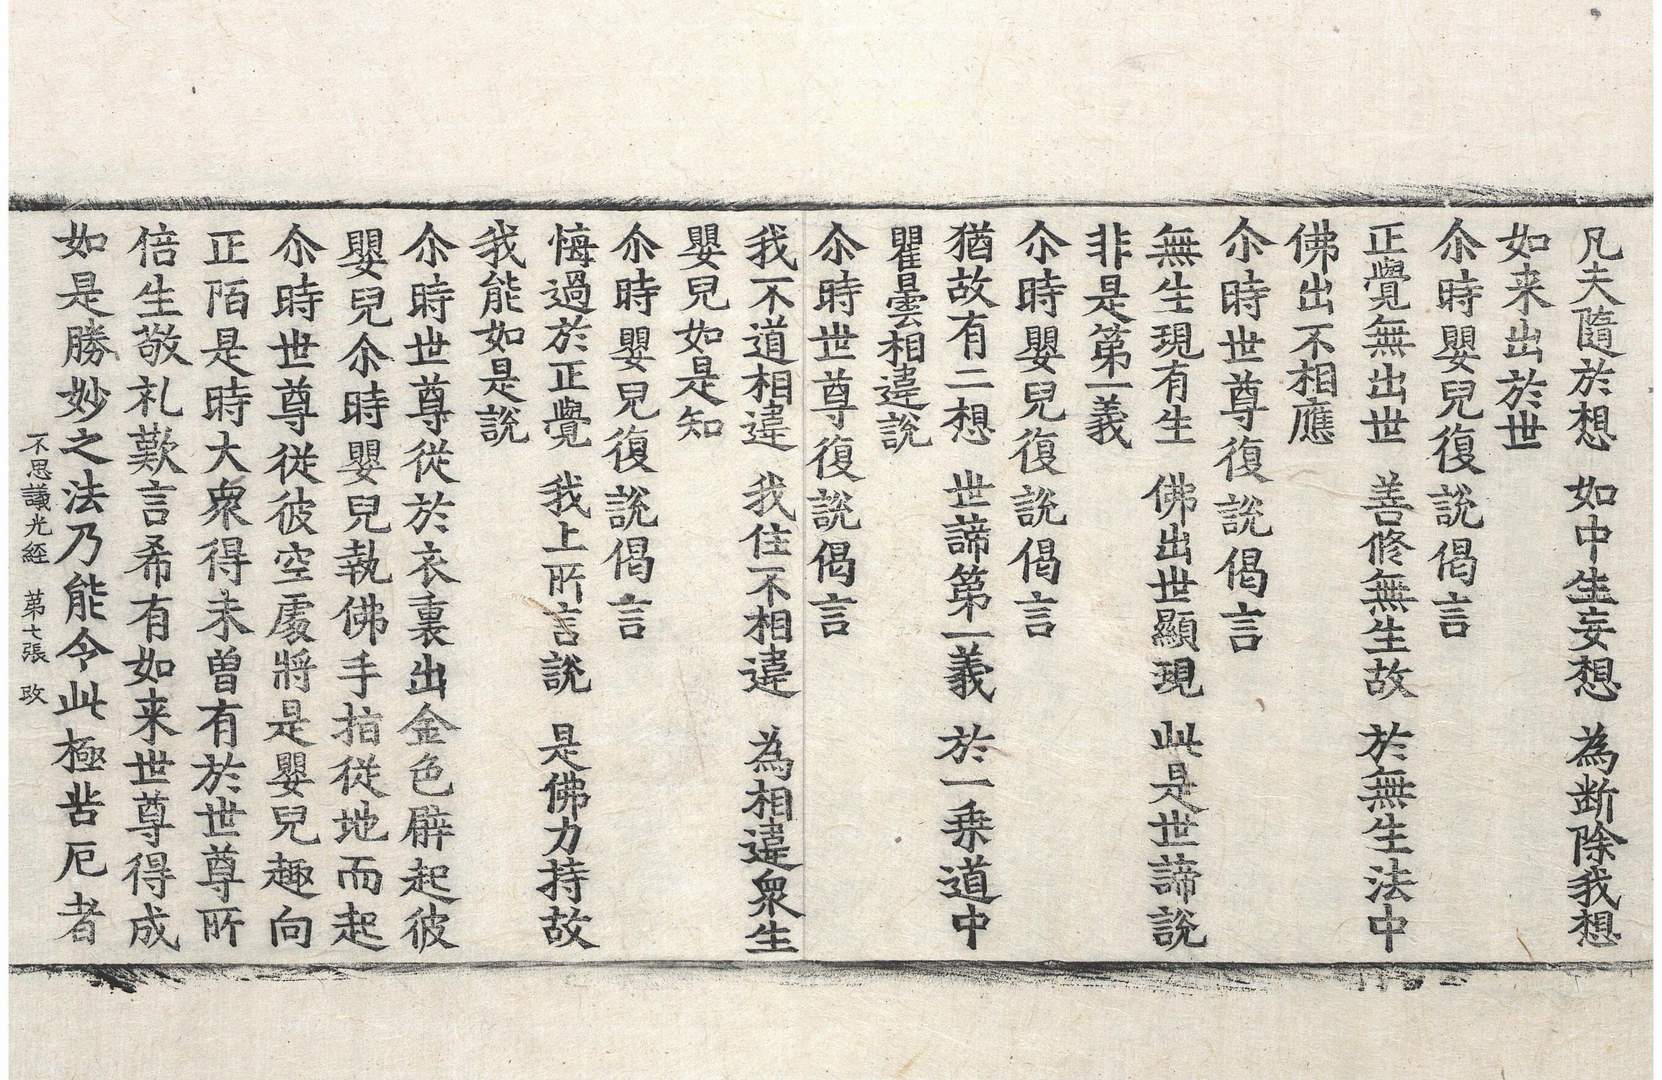 凡夫隨於想　如中生妄想　為断除我想
如来出於世
尒時嬰兒復說偈言
正覺無出世　善修無生故　於無生法中
佛出不相應
尒時世尊復說偈言
無生現有生　佛出世顯現　此是世諦說
非是第一義
尒時嬰兒復說偈言
猶故有二想　世諦第一義　於一乗道中
瞿曇相違說
尒時世尊復說偈言
我不道相違　我住不相違　為相違衆生
嬰兒如是知
尒時嬰兒復說偈言
悔過於正覺　我上所言說　是佛力持故
我能如是說
尒時世尊從於衣裏出金色臂起彼
嬰兒尒時嬰兒執佛手指従地而起
尒時世尊従彼空處將是嬰兒趣向
正陌是時大衆得未曾有於世尊所
倍生敬礼歎言希有如来世尊得成
如是勝妙之法乃能令此極苦厄者
不思議光經　第七張　改